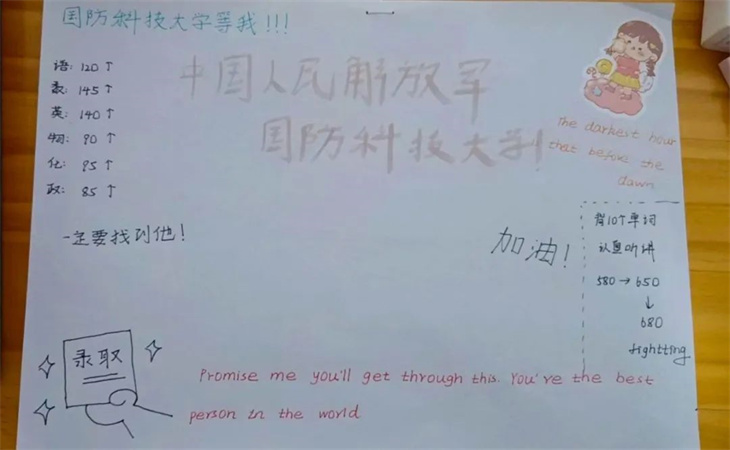 国防科技大学等我!!!
语: 120↑
数: 145↑
英: 140↑
物: 90↑
化: 95↑
政: 85↑
一定要找到他!
中国人民解放军
国防科技大学!
The darkest hour
that before the
dawn
加油!
背10个单词
认真听讲
580→650
↓
680
fightting
录取
Promise me you'll get through this. You've the best
person in the world